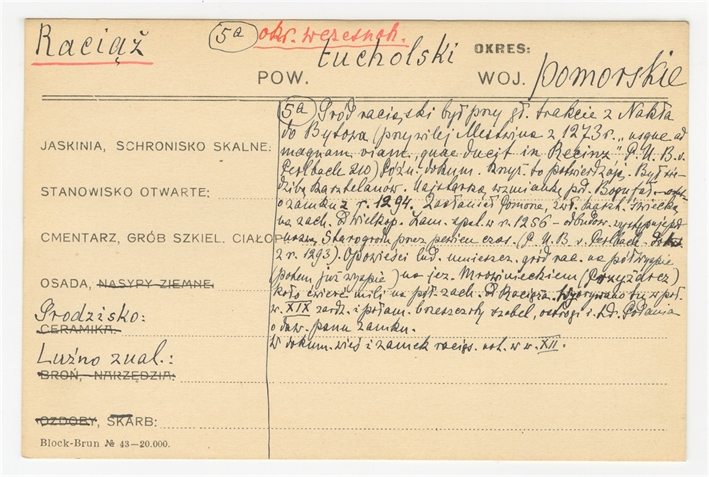 Raciąż
5a okr. wczesnoh.
OKRES:
POW. tucholski WOJ. pomorskie
JASKINIA, SCHRONISKO SKALNE:
STANOWISKO OTWARTE:
CMENTARZ, GRÓB SZKIEL. CIAŁOP
OSADA, NASYPY ZIEMNE:
Grodzisko:
CERAMIKA:
Luźno znal.:
BROŃ, NARZĘDZIA:
OZDOBY, SKARB:
Block-Brun № 43-20.000.
5a Gród raciąski był przy gł. trakcie z Nakła
do Bytowa (przywilej Mestwina z 1273 r. „usque ad
magnam viam, quae ducit in Recinz" P. U. B. v.
Perlbach 210) Późn. dokum. to potwierdzają. Był sie-
dzibą kasztelanów. Najstarsza wzmianka
o zamku z r. 1294.
na zach. Wielkop. Zam. spal. w r. 1256 – odbudow.
Starogrodu przez pewien czas. (P. U. B. v. Perlbach
z r. 1293). Opowieści lud. umieszcz. gród rac. na półwyspie
(potem już wyspie) na jez.
koło ćwierć mili na płd. zach. Raciąża. Wyorywano tu w poł.
w. XIX zardz. i połam. brzeszczoty szabel, ostrogi i t.d. Podania
o daw. panu zamku.
W dokum. wieś i zamek raciąs. w w. XII.